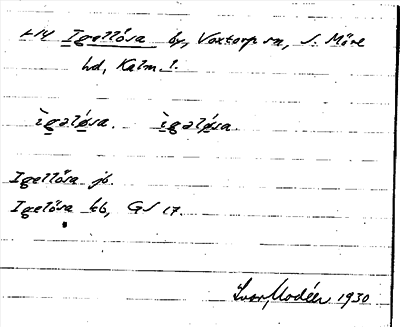 Igellösa by, Voxtorp sn, S. Möre
hd, Kalm. l.
ìgəlø̀sa. ìgəlø̀sa.
Igellösa jb.
Igelösa kb, GS 17.
Ivar Modéer 1930